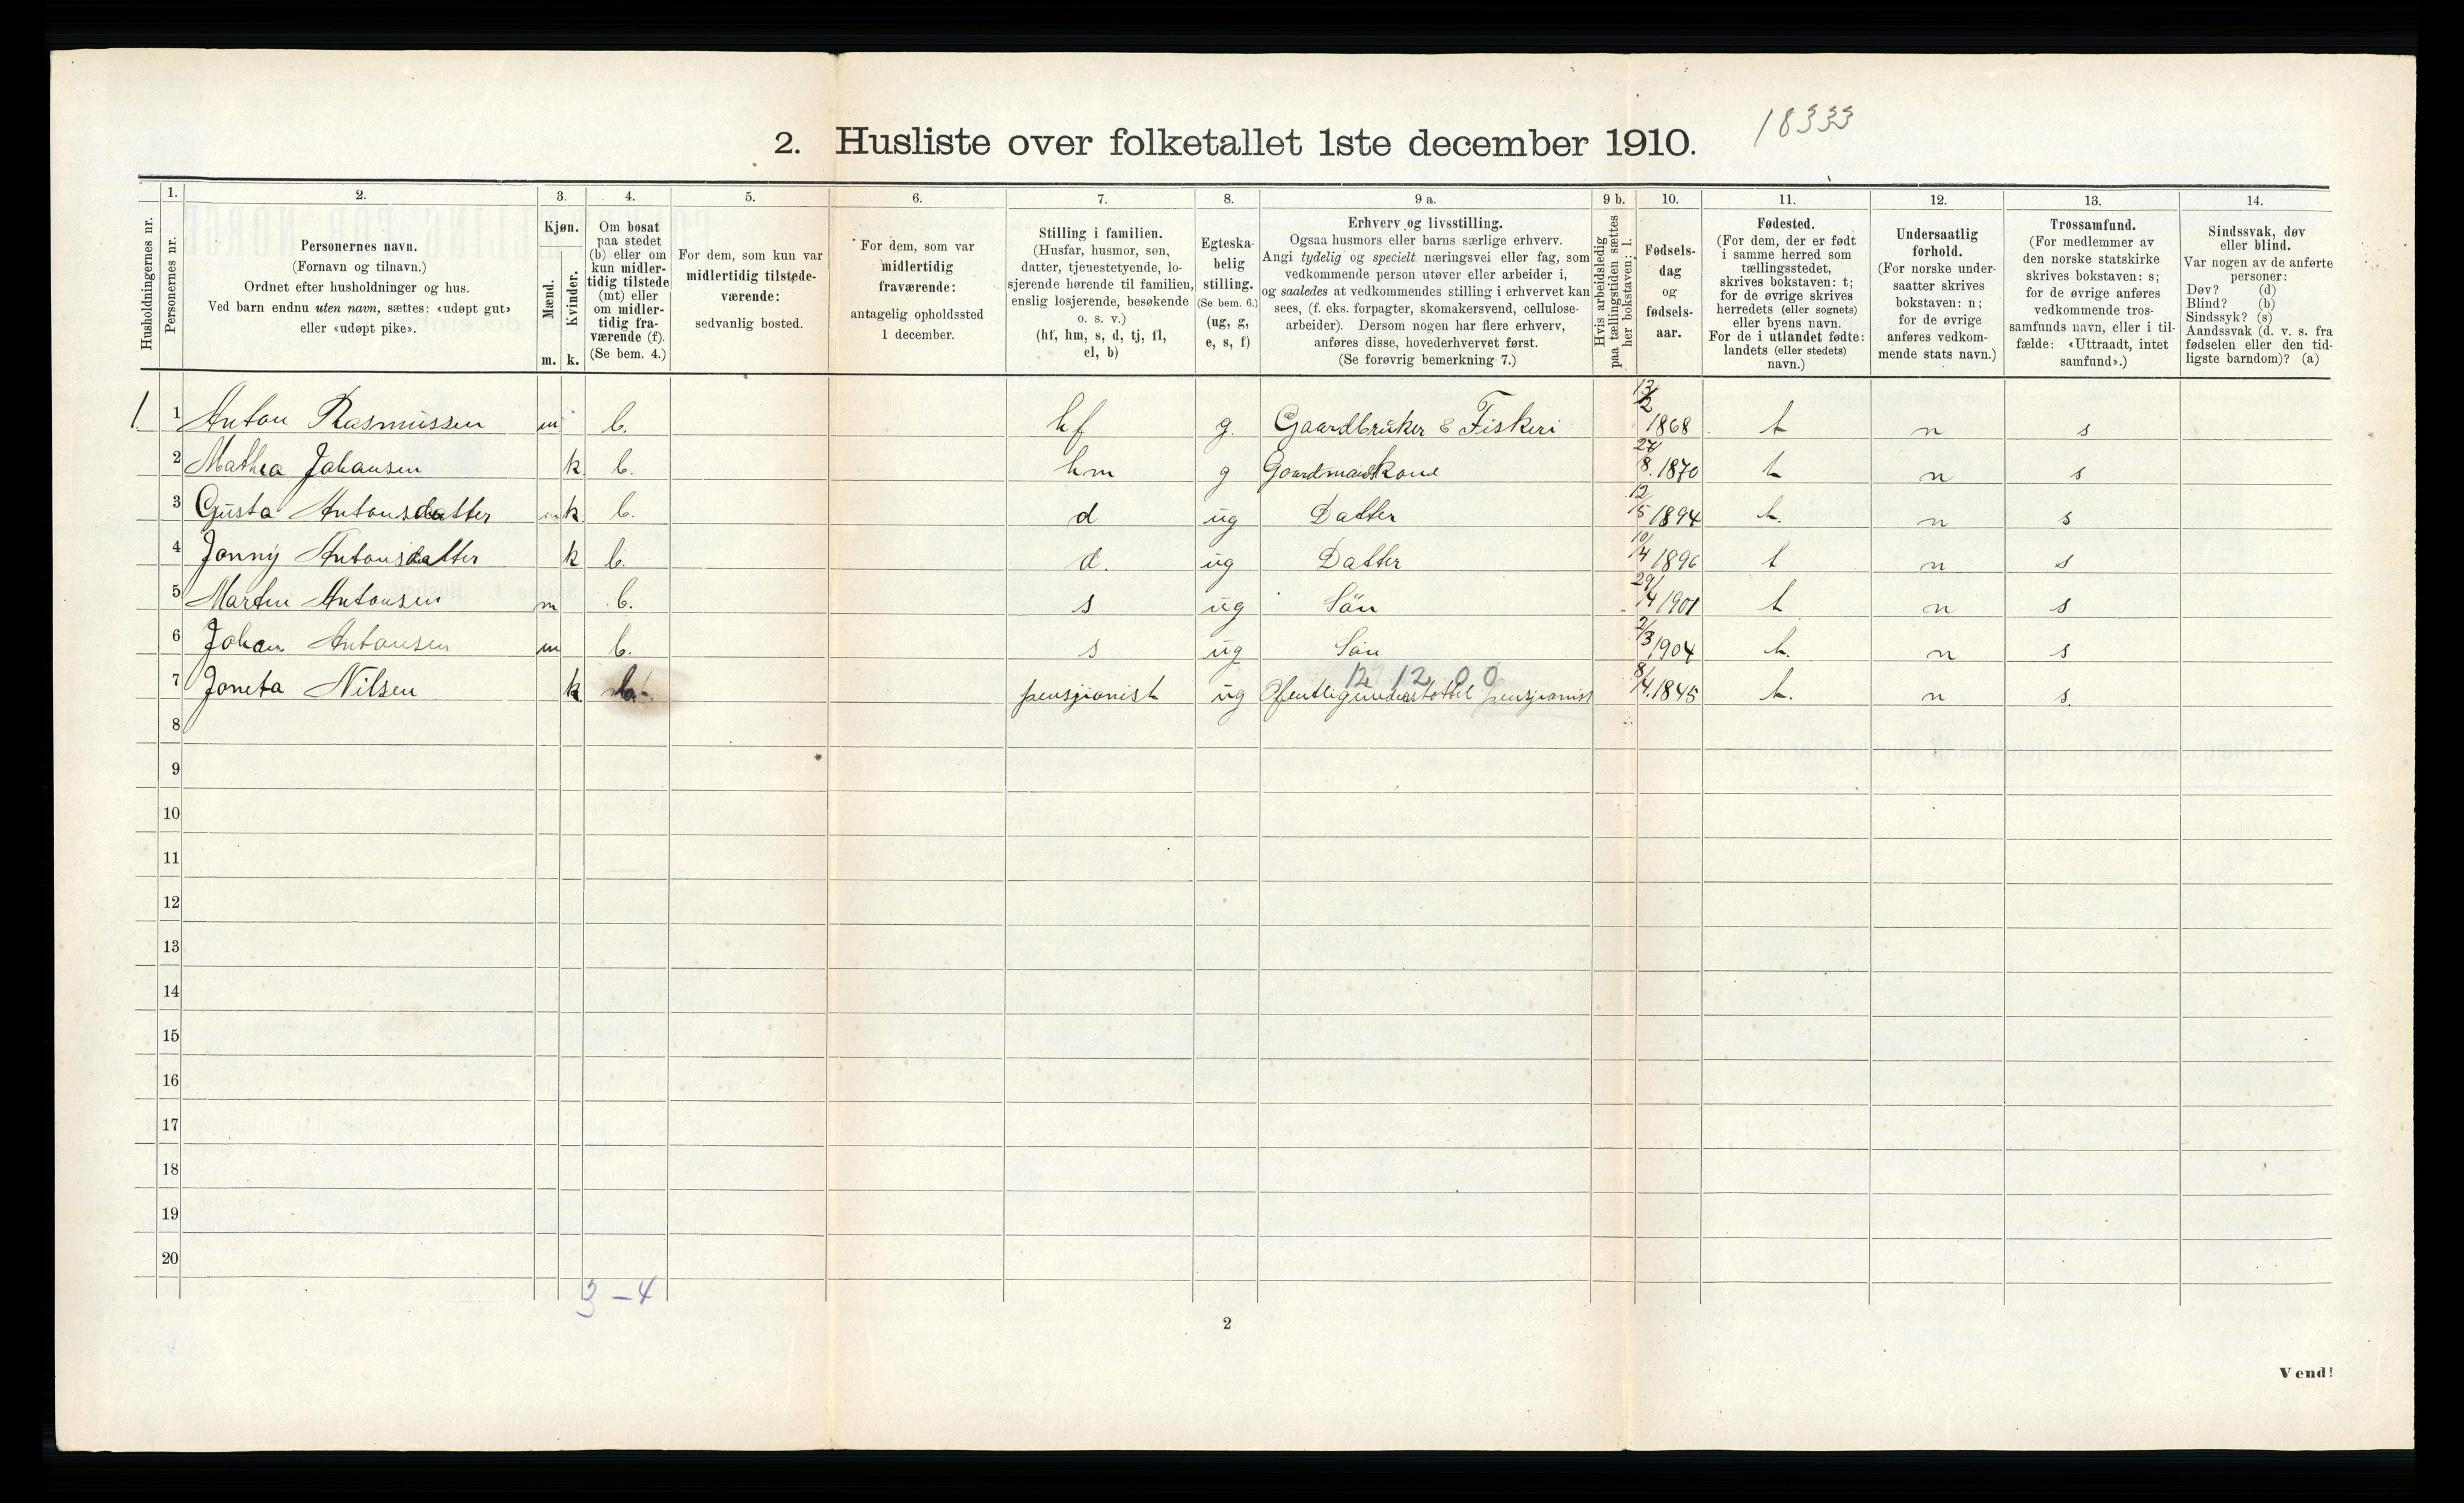 18333
2. Husliste over folketallet 1ste december 1910.
Husholdningernes nr.
1.
Personernes nr.
2.
Personernes navn.
(Fornavn og tilnavn.)
Ordnet efter husholdninger og hus.
Ved barn endnu uten navn, sættes: «udøpt gut»
eller «udøpt pike».
3.
Kjøn.
Mænd.
Kvinder.
m. k.
4.
Om bosat
paa stedet
(b) eller om
kun midler-
tidig tilstede
(mt) eller
om midler-
tidig fra-
værende (f).
(Se bem. 4.)
5.
For dem, som kun var
midlertidig tilstede-
værende:
sedvanlig bosted.
6.
For dem, som var
midlertidig
fraværende:
antagelig opholdssted
1 december.
7.
Stilling i familien.
(Husfar, husmor, søn,
datter, tjenestetyende, lo-
sjerende hørende til familien,
enslig losjerende, besøkende
o. s. v.)
(hf, hm, s, d, tj, fl,
el, b)
8.
Egteska-
belig
stilling.
(Se bem. 6.)
(ug, g,
e, s, f)
9 a.
Erhverv og livsstilling.
Ogsaa husmors eller barns særlige erhverv.
Angi tydelig og specielt næringsvei eller fag, som
vedkommende person utøver eller arbeider i,
og saaledes at vedkommendes stilling i erhvervet kan
sees, (f. eks. forpagter, skomakersvend, cellulose-
arbeider). Dersom nogen har flere erhverv,
anføres disse, hovederhvervet først.
(Se forøvrig bemerkning 7.)
9 b.
Hvis arbeidsledig
paa tællingstiden sættes
her bokstaven: l.
10.
Fødsels-
dag
og
fødsels-
aar.
11.
Fødested.
(For dem, der er født
i samme herred som
tællingsstedet,
skrives bokstaven: t;
for de øvrige skrives
herredets (eller sognets)
eller byens navn.
For de i utlandet fødte:
landets (eller stedets)
navn.)
12.
Undersaatlig
forhold.
(For norske under-
saatter skrives
bokstaven: n;
for de øvrige
anføres vedkom-
mende stats navn.)
13.
Trossamfund.
(For medlemmer av
den norske statskirke
skrives bokstaven: s;
for de øvrige anføres
vedkommende tros-
samfunds navn, eller i til-
fælde: «Uttraadt, intet
samfund».)
14.
Sindssvak, døv
eller blind.
Var nogen av de anførte
personer:
Døv? (d)
Blind? (b)
Sindssyk? (s)
Aandssvak (d. v. s. fra
fødselen eller den tid-
ligste barndom)? (a)
1. 1 Anton Rasmussen m b. hf g. Gaardbruker & Fiskeri 13/2 1868 t n s
2 Mathea Johansen k b. hm g Gaardmandskone 27/8. 1870 t n s
3 Gusta Antonsdatter k b. d ug Datter 12/5 1894 t. n s
4 Jonny Antonsdatter k b. d. ug Datter 10/4 1896 t n s
5 Martin Antonsen m b. s ug Sön 29/4 1901 t n s
6 Johan Antonsen m b. s ug Sön 2/3 1904 t. n s
12 12 00
7 Joneta Nilsen k b. pensjonist ug Ofentlig understöttet pensjonist 8/4. 1845 t. n s.
8
9
10
11
12
13
14
15
16
17
18
19
20
3 – 4
2
Vend!